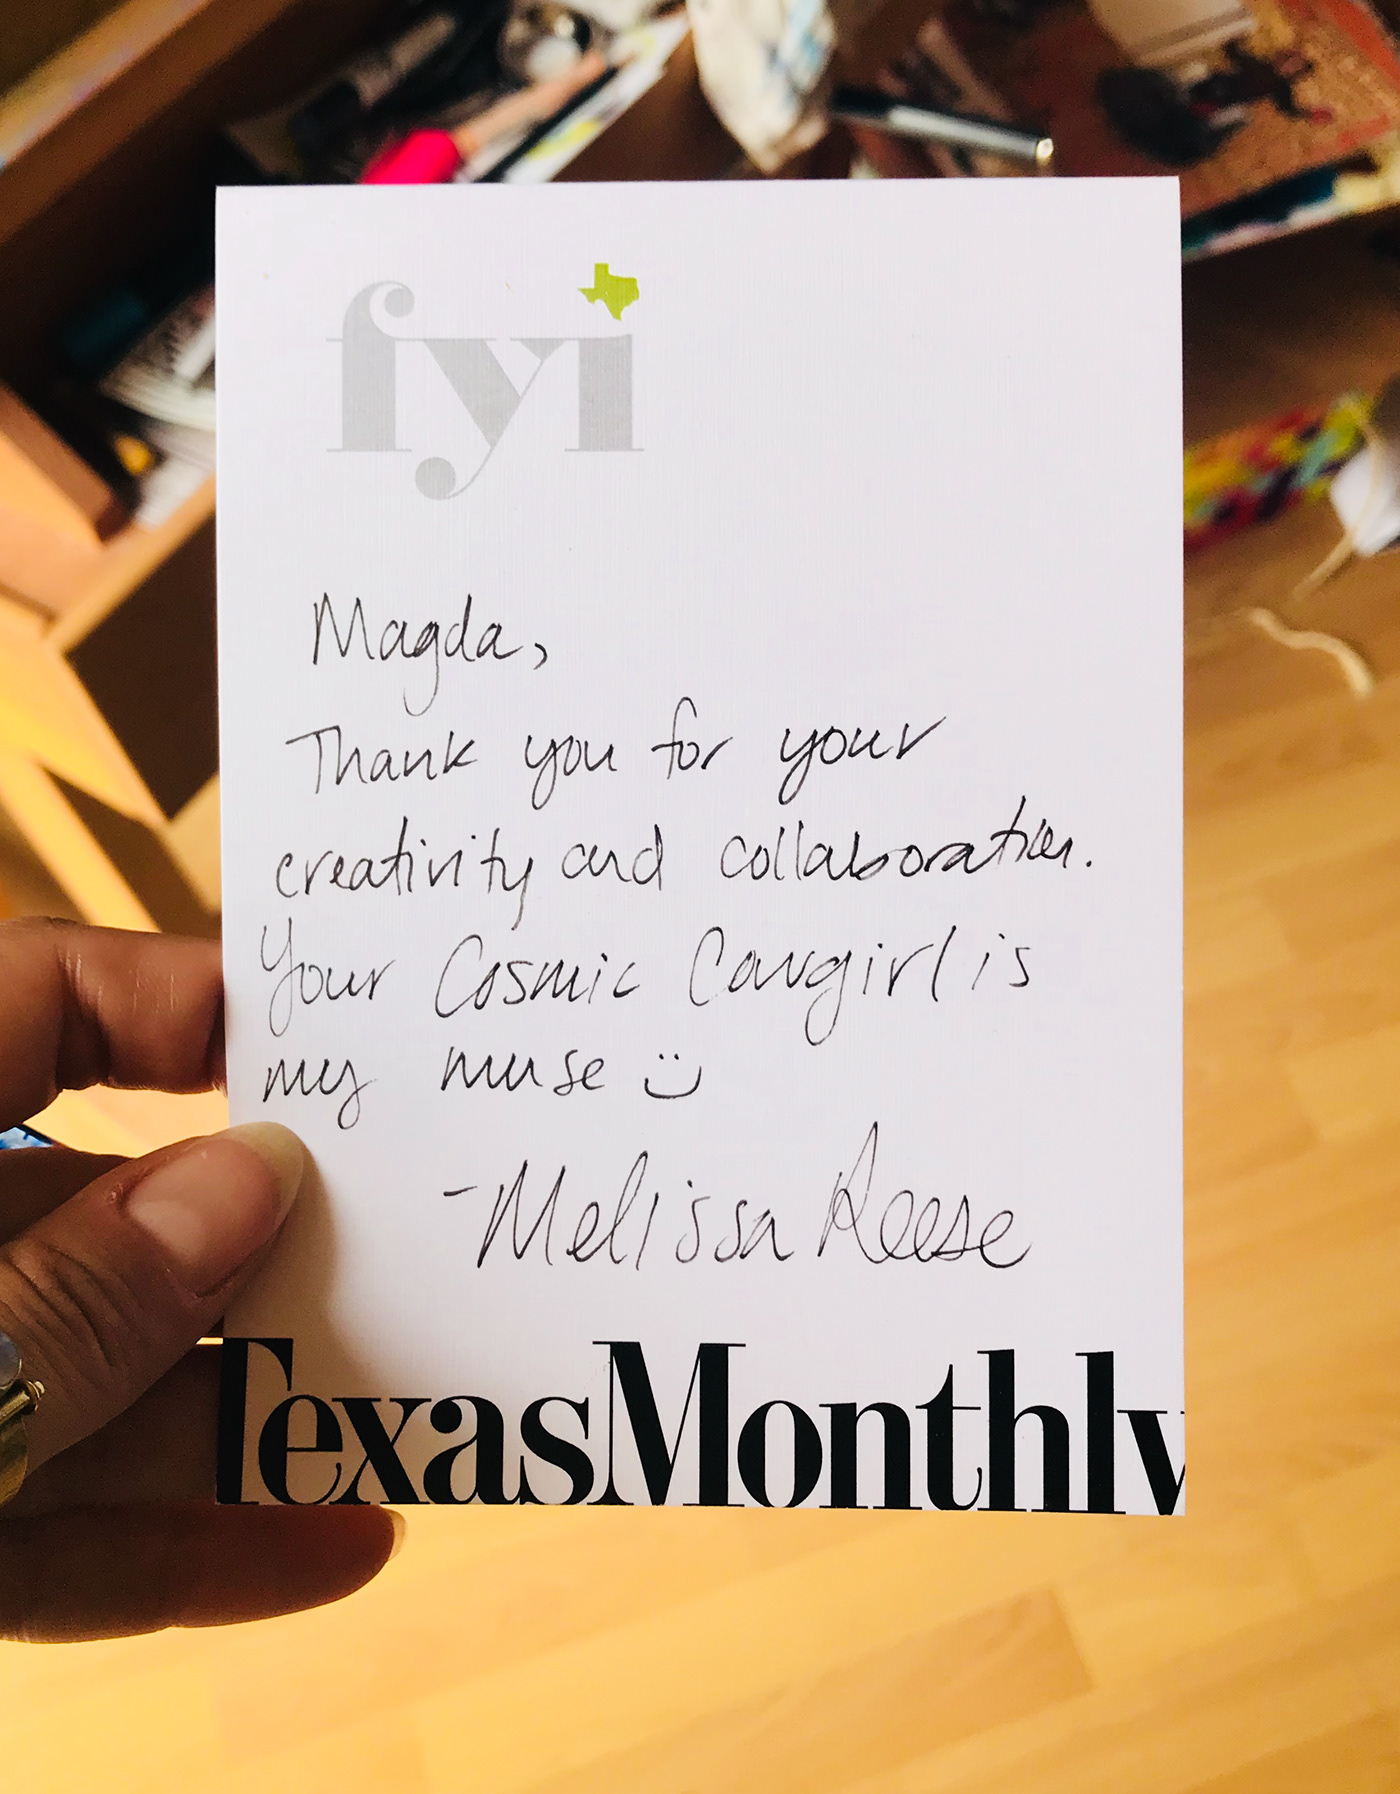 fyi
Magda,
Thank you for your
creativity and collaboration.
Your Cosmic Cowgirl is
my muse :)
-Melissa Reese
TexasMonthly